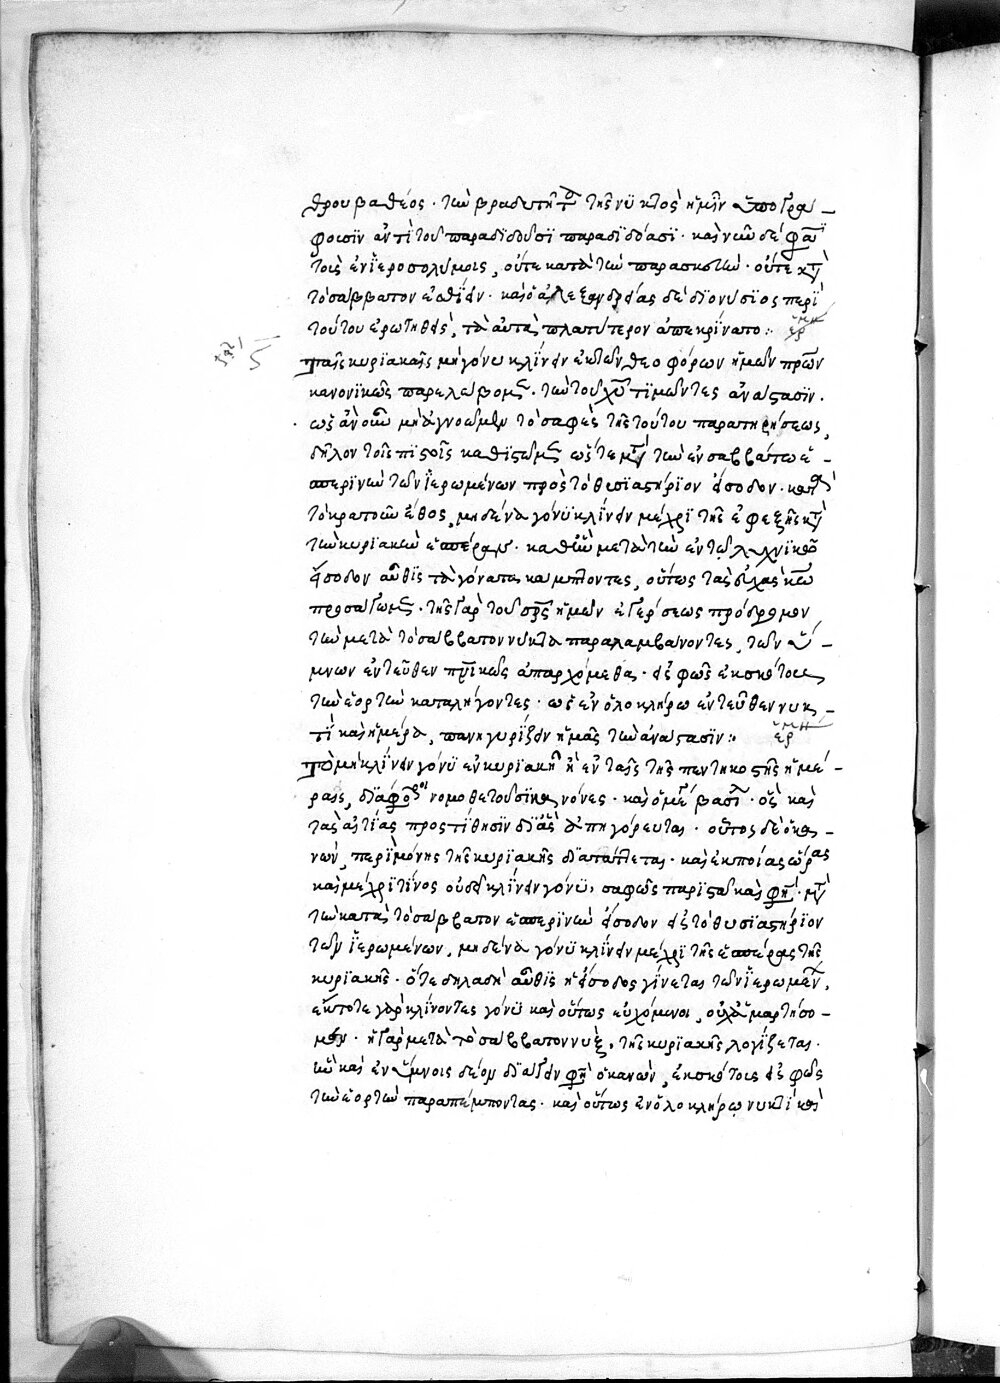 θρου βαθέος · τὴν βραδυτῆτα τῆς νυκτὸς ἡμῖν ὑπογρά-
φουσιν ἀντὶ τοῦ παραδιδοῦσι παραδιδόασι · καὶ νῦν δέ φασι
τοῖς ἐν ἱεροσολύμοις, οὔτε κατὰ τὴν παρασκευὴν · οὔτε κατὰ
τὸ σάββατον ἐσθίειν · καὶ ὁ ἀλεξανδρείας δὲ διονύσιος περὶ
τούτου ἐρωτηθεὶς, τὰ αὐτὰ πλατύτερον ἀπεκρίνατο :
Ταῖς κυριακαῖς μὴ γόνυ κλίνειν ἐκ τῶν θεοφόρων ἡμῶν πρων
κανονικῶς παρελάβομεν · τὴν τοῦ χυ τιμῶντες ἀνάστασιν ·
ὡς ἂν οὖν μὴ ἀγνοῶμεν τὸ σαφὲς τῆς τούτου παρατηρήσεως,
δῆλον τοῖς πιστοῖς καθιστῶμεν ὥστε μετὰ τὴν ἐν σαββάτω ἑ-
σπερινὴν τῶν ἱερωμένων πρὸς τὸ θυσιαστήριον εἴσοδον · κατὰ
τὸ κρατοῦν ἔθος, μηδένα γόνυ κλίνειν μέχρι τῆς ἐφεξῆς κατὰ
τὴν κυριακὴν ἑσπέρας · καθ' ἣν μετὰ τὴν ἐν τῶ λυχνικῶ
εἴσοδον αὖθις τὰ γόνατα κάμπτοντες, οὕτως τὰς εὐχὰς κω
προσάγωμεν · τῆς γὰρ τοῦ σρς ἡμῶν ἐγέρσεως πρόδρομον
τὴν μετὰ τὸ σάββατον νύκτα παραλαμβάνοντες, τῶν ὕ-
μνων ἐντεῦθεν πνικῶς ἀπαρχόμεθα · εἰς φῶς ἐκ σκότους
τὴν ἑορτὴν καταλήγοντες · ὡς ἐν ὁλοκλήρω ἐντεῦθεν νυκ-
τὶ καὶ ἡμέρα, πανηγυρίζειν ἡμᾶς τὴν ἀνάστασιν :
Τὸ μὴ κλίνειν γόνυ ἐν κυριακῆ ἢ ἐν ταῖς τῆς πεντηκοστῆς ἡμέ-
ραις, διάφοροι νομοθετοῦσι κανόνες · καὶ ὁ μέγας βασίλειος · ὃς καὶ
τὰς αἰτίας προστίθησιν δι' ἃς ἀπηγόρευται · οὗτος δὲ ὁ κα-
νὼν, περὶ μόνης τῆς κυριακῆς διατάττεται · καὶ ἐκ ποίας ὥρας
καὶ μέχρι τίνος οὐ δεῖ κλίνειν γόνυ, σαφῶς παριστᾶ καὶ φησὶ · μετὰ
τὴν κατὰ τὸ σάββατον ἑσπερινὴν εἴσοδον εἰς τὸ θυσιαστήριον
τῶν ἱερωμένων, μηδένα γόνυ κλίνειν μέχρι τῆς ἑσπέρας τῆς
κυριακῆς · ὅτε δηλαδὴ αὖθις ἡ εἴσοδος γίνεται τῶν ἱερωμένων,
ἔκτοτε γὰρ κλίνοντες γόνυ καὶ οὕτως εὐχόμενοι,
μεν · ἡ γὰρ μετὰ τὸ σάββατον νὺξ, τῆς κυριακῆς λογίζεται ·
ἣν καὶ ἐν ὕμνοις δέον διάγειν φησὶ ὁ κανὼν, ἐκ σκότους εἰς φῶς
τὴν ἑορτὴν παραπέμποντας · καὶ οὕτως ἐν ὁλοκλήρω νυκτὶ καὶ